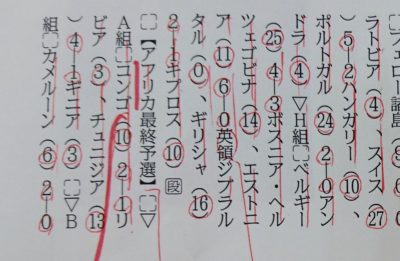 フェロー諸島
ラトビア（4）、スイス（27
）5―2ハンガリー（10）、
ポルトガル（24 2―0アン
ドラ（4）▽H組〔〕ベルギー
（25）4―3ボスニア・ヘル
ツェゴビナ（14）、エストニ
ア（11）6 0英領ジブラル
タル（0）、ギリシャ（16）
2―1キプロス（10）段
〔〕【アフリカ最終予選】〔〕▽
A組〔〕コンゴ（10 2―1リ
ビア（3）、チュニジア（13
）4―1ギニア（3）〔〕▽B
組〔〕カメルーン（6）2―0